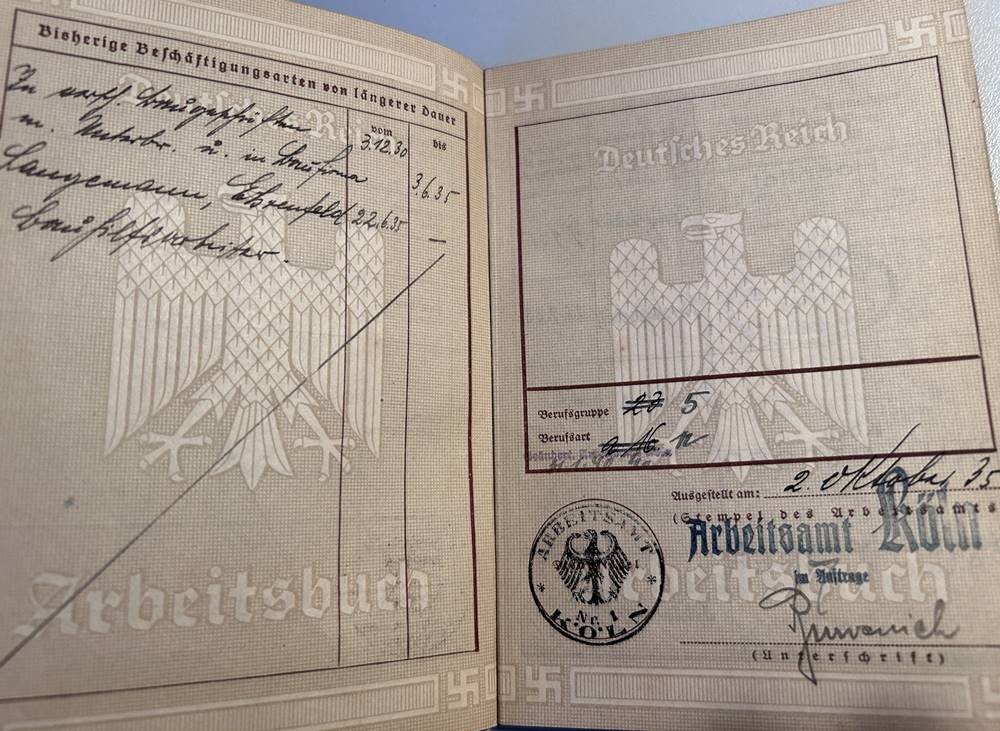 Bisherige Beschäftigungsarten von längerer Dauer
vom
bis
In versch. Baugeschäften 3.12.30
m. Unterbr. u. in Baufirma 3.6.35
Langemann, Ehrenfeld 22.6.35 —
Bauhilfsarbeiter.
Deutsches Reich
Arbeitsbuch
Deutsches Reich
Berufsgruppe 23 5
Berufsart a 16. n
Ausgestellt am: 2. Oktober 35
(Stempel des Arbeitsamts
Arbeitsamt Köln
Im Auftrage
Arbeitsbuch
(Unterschrift)
ARBEITSAMT
Nr. 1
* KÖLN *